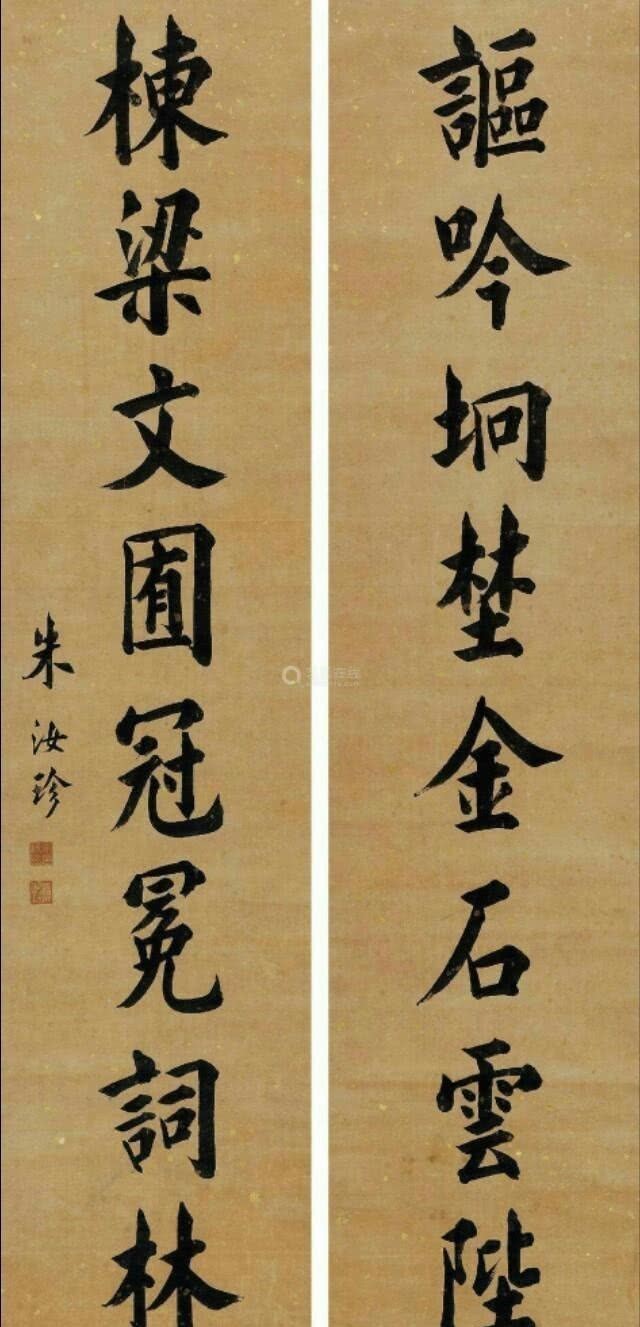 謳吟坰埜金石雲陛
棟梁文囿冠冕詞林
朱汝珍